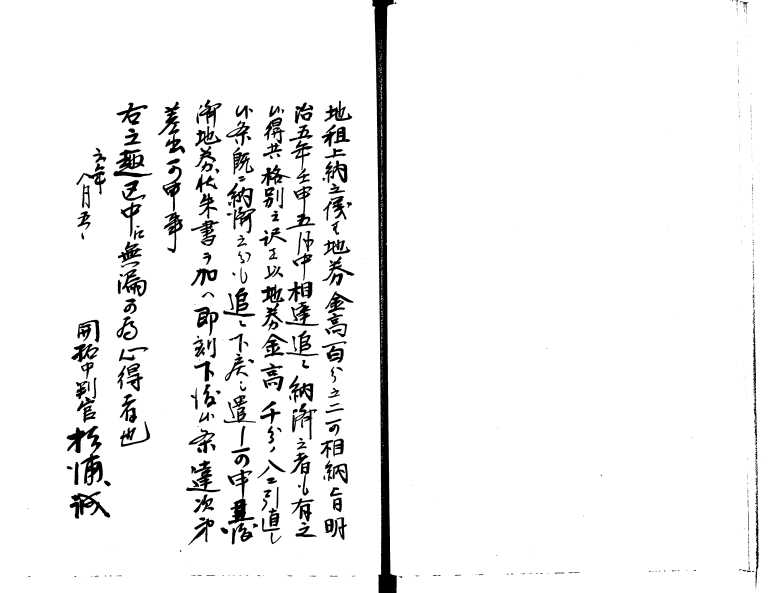 地租上納之儀者地券金高百分之二可相納旨明
治五年壬申五月中相達追々納済之者も有之
候得共格別之訳ヲ以地券金高千分ノ八ニ引直し
候条既ニ納済之分も追々下戻し遣し可申且渡
済地券状朱書ヲ加ヘ即刻下渡候条達次第
差出可申事
右之趣区中ニ無漏可為心得者也
六年
八月五日
開拓中判官 松浦誠